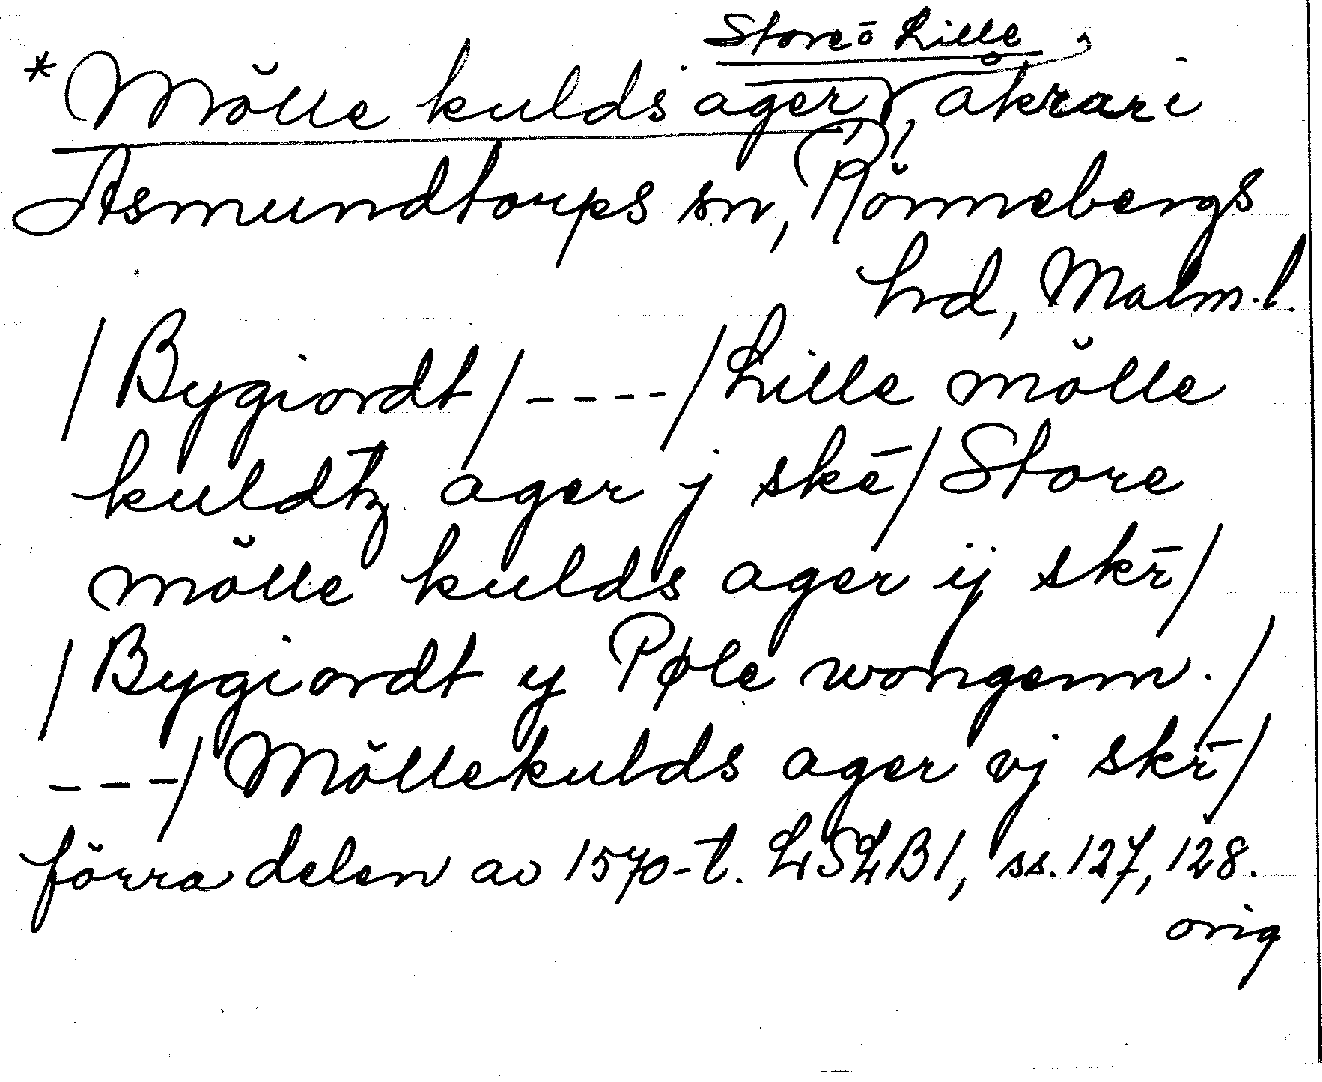 Store o Lille,
*Mölle kulds ager, åkrar i
Asmundtorps sn, Rönnebergs
hd, Malm. l.
/Bygiordt/----/Lille mölle
kuldtz ager j skē/Store
mölle kulds ager ij skr̄/
/Bygiordt y Pøle wongenn./
---/Möllekulds ager vj skr̄/
förra delen av 1570-t. LSLB1, ss. 127, 128.
orig